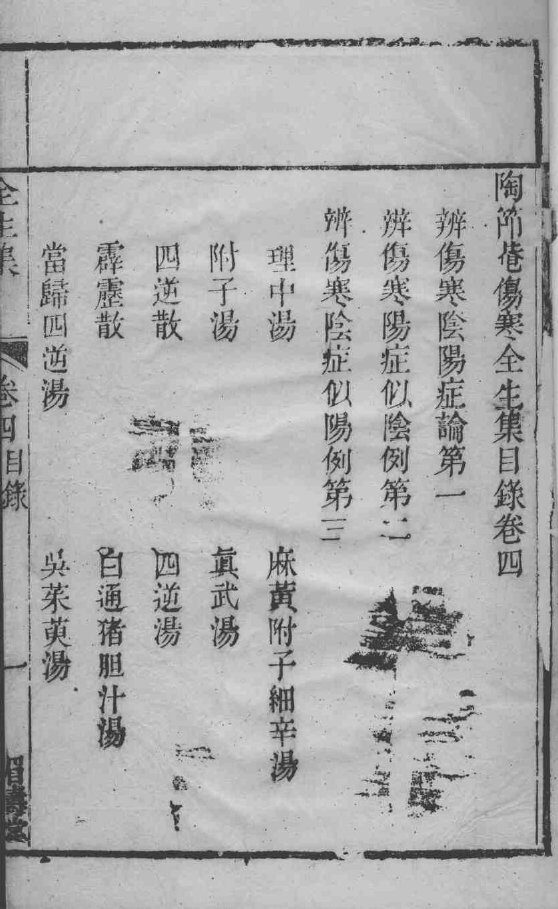 陶節菴傷寒全生集目錄卷四
辨傷寒陰陽症論第一
辨傷寒陽症似陰例第二
辨傷寒陰症似陽例第三
理中湯 麻黃附子細辛湯
附子湯 眞武湯
四逆散 四逆湯
霹靂散 白通猪胆汁湯
當歸四逆湯 吳茱萸湯
全生集 卷四目錄 一 眉壽堂